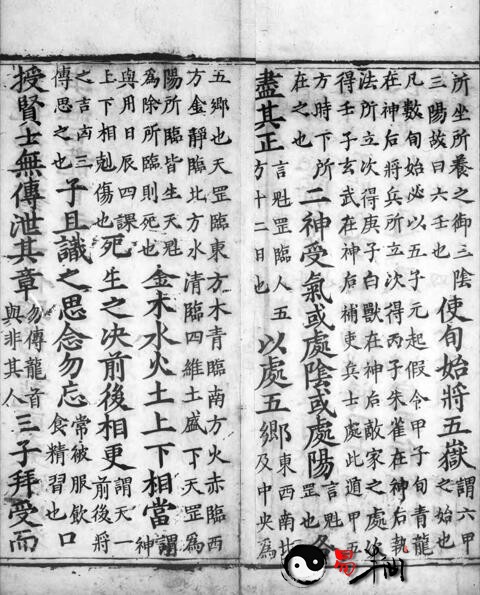 所坐所養之御三陰
三陽故曰六壬也
使旬始將五嶽
謂六甲
之始也
凡數旬始必以五子元起假令甲子旬青龍
在神后將兵所立次得丙子朱雀在神后執
法所立次得庚子白獸在神后敵家之處次
得壬子玄武在神后補吏兵士處此道甲五
方時下所
在之也
二神受氣或處陰或處陽
言魁
罡也
各
盡其正
言魁罡臨人五
方十二日也
以處五鄉
東西南北
及中央為
五鄉也天罡臨東方木青臨南方火赤臨西
方金靜臨北方水清臨四維土盛下天罡為
陽所臨皆生天魁
為除所臨則死也
金木水火土上下相當
謂
神
與用日辰四課
上下相剋傷也
死生之決前後相更
謂天一
前後將
之吉凶三
傳思之也
子且識之思念勿忘
常被服飲
食精習也
口
授賢士無傳泄其章
勿傳龍首
與非其人
三子拜受而
易